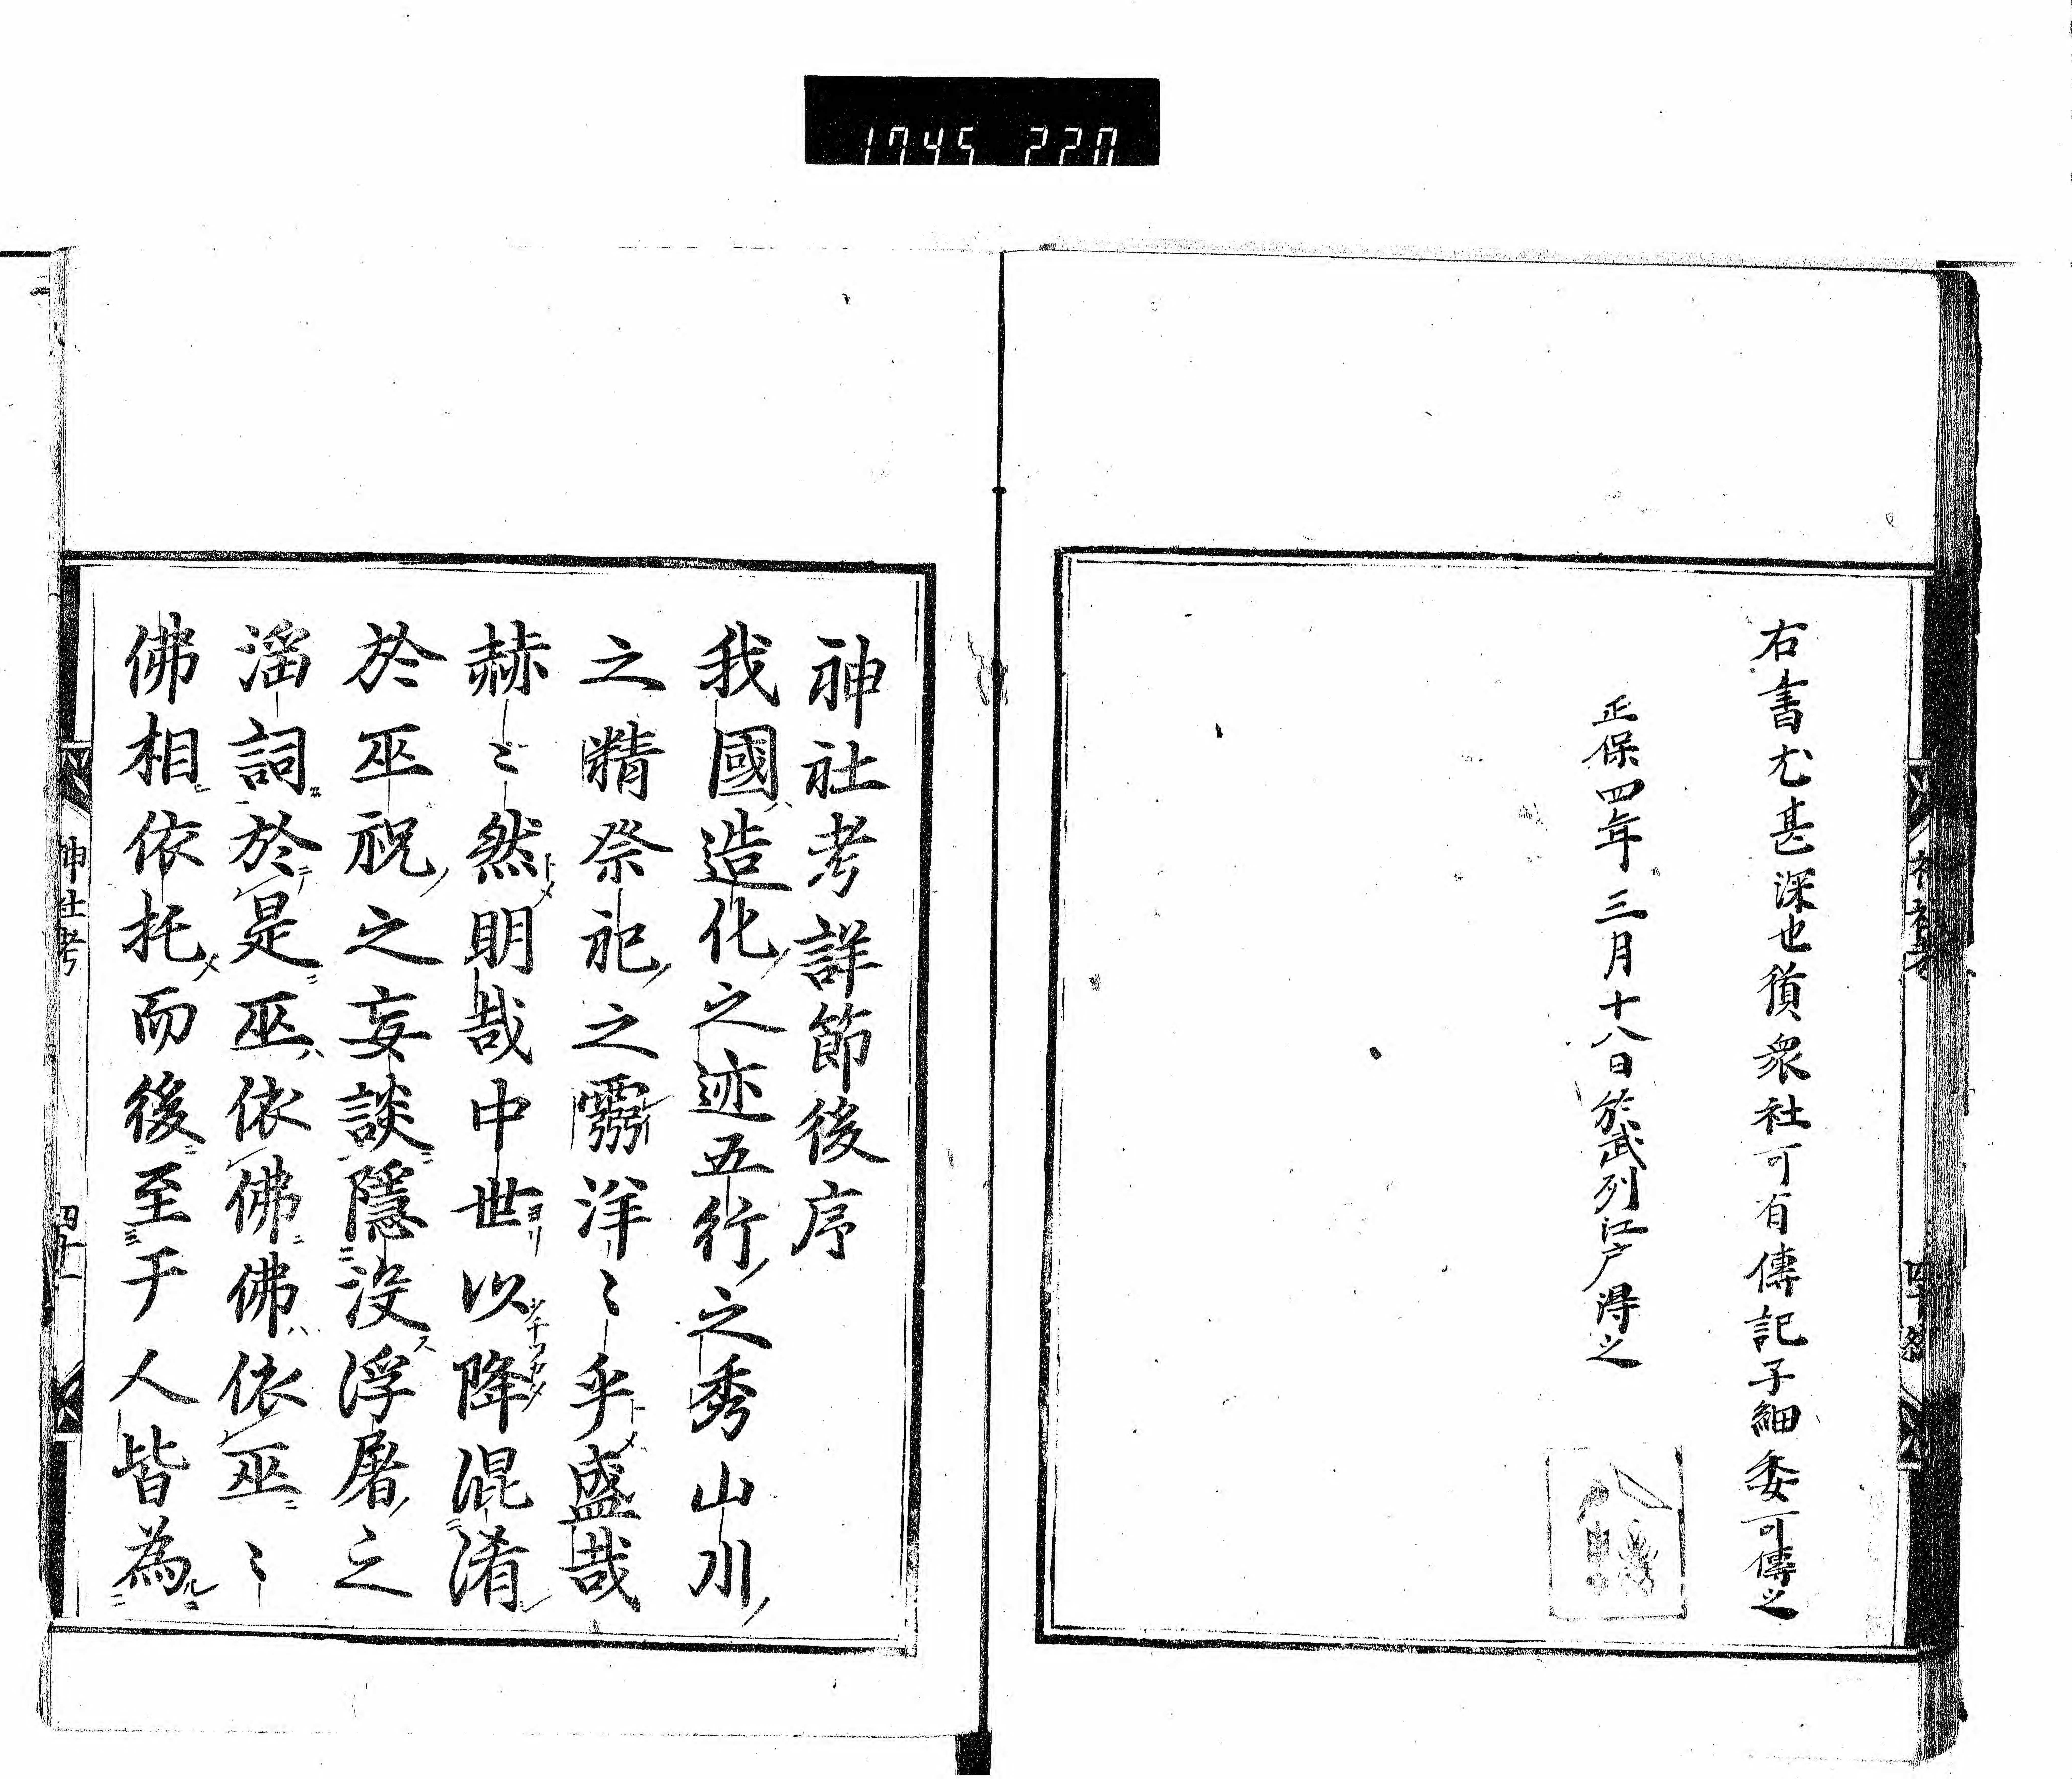 1745 220
右書尤甚深也貭衆社可有傳記子細委可傳之
正保四年三月十八日於武列江戸得之
神社考詳節後序
我國造化之迹五行之秀山川
之精祭祀之靈洋〻乎盛哉
赫〻然明哉中世以降混淆
於巫祝之妄談隱没浮屠之
滛詞於是巫依佛佛依巫〻
佛相依托而後至于人皆為
神社考
四十一